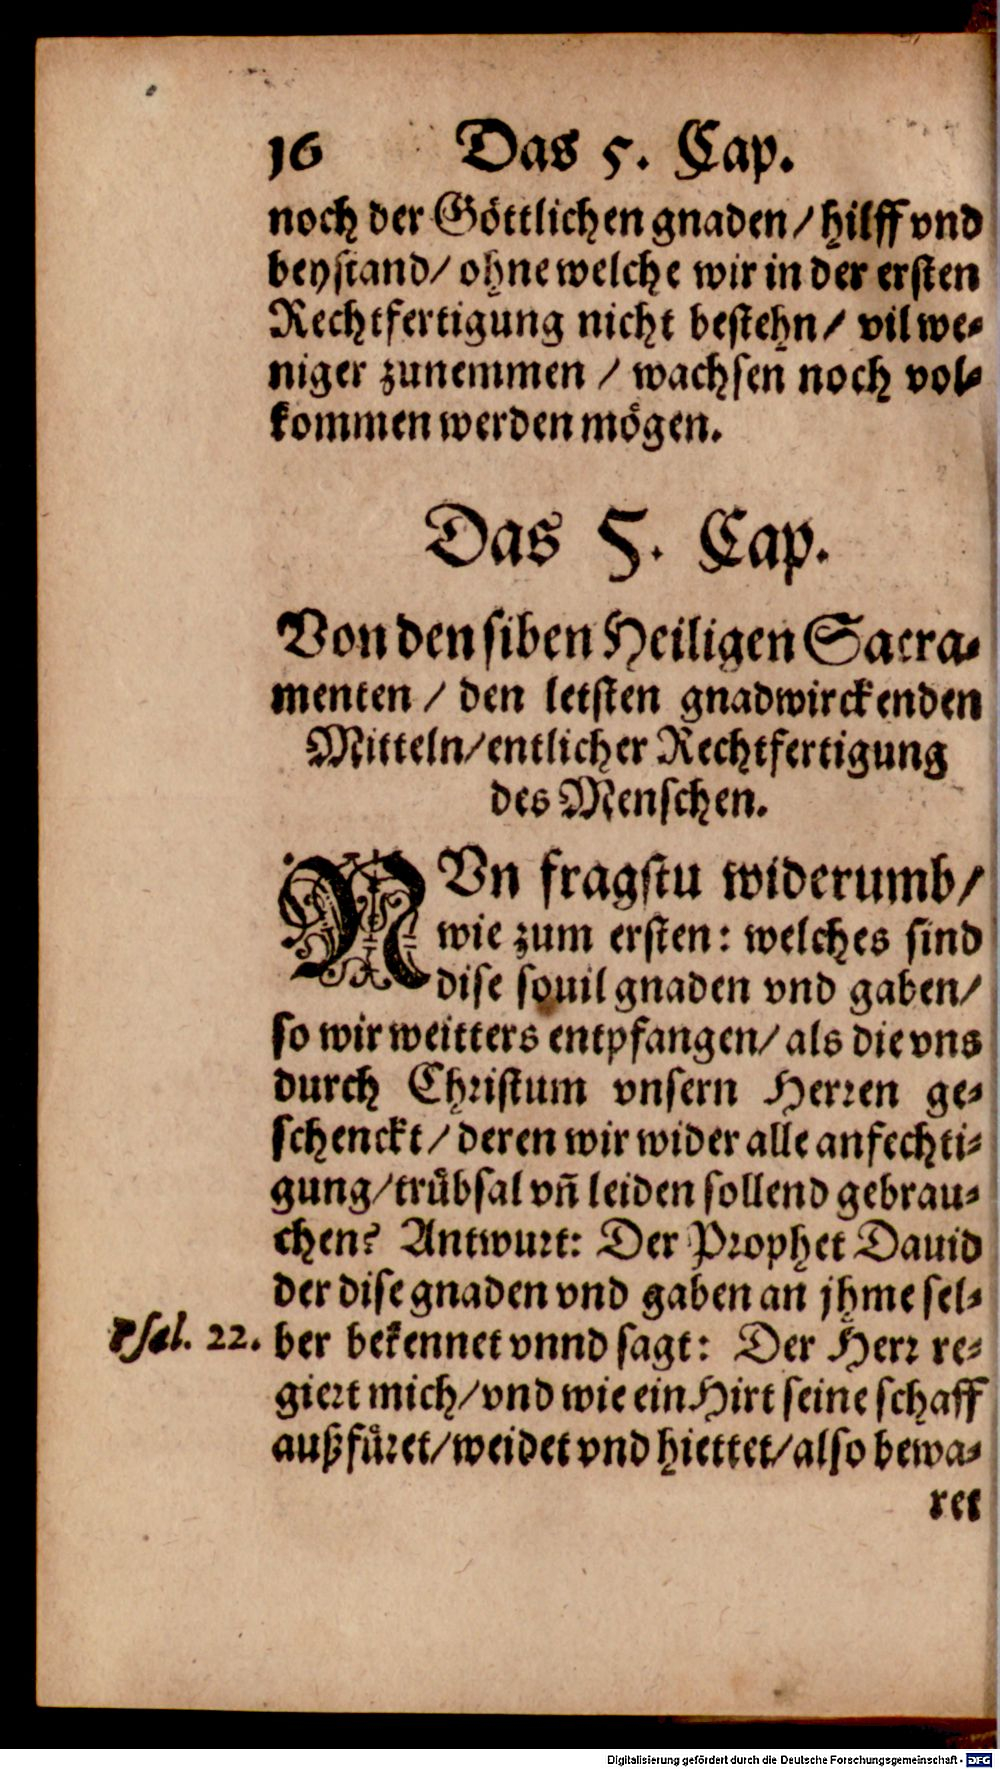 16 Das 5. Cap.
noch der Göttlichen gnaden/ hilff vnd
beystand/ ohne welche wir in der ersten
Rechtfertigung nicht bestehn/ vil we-
niger zunemmen / wachsen noch vol-
kommen werden mögen.
Das 5. Cap.
Von den siben Heiligen Sacra-
menten / den letsten gnadwirckenden
Mitteln/ entlicher Rechtfertigung
des Menschen.
NVn fragstu widerumb/
wie zum ersten: welches sind
dise souil gnaden vnd gaben/
so wir weitters entpfangen/ als die vns
durch Christum vnsern Herren ge-
schenckt/ deren wir wider alle anfechti-
gung/ trůbsal vñ leiden sollend gebrau-
chen? Antwurt: Der Prophet Dauid
der dise gnaden vnd gaben an jhme sel-
Psal. 22. ber bekennet vnnd sagt: Der Herr re-
giert mich/ vnd wie ein Hirt seine schaff
außfůret/ weidet vnd hiettet/ also bewa-
ret
Digitalisierung gefördert durch die Deutsche Forschungsgemeinschaft - DFG